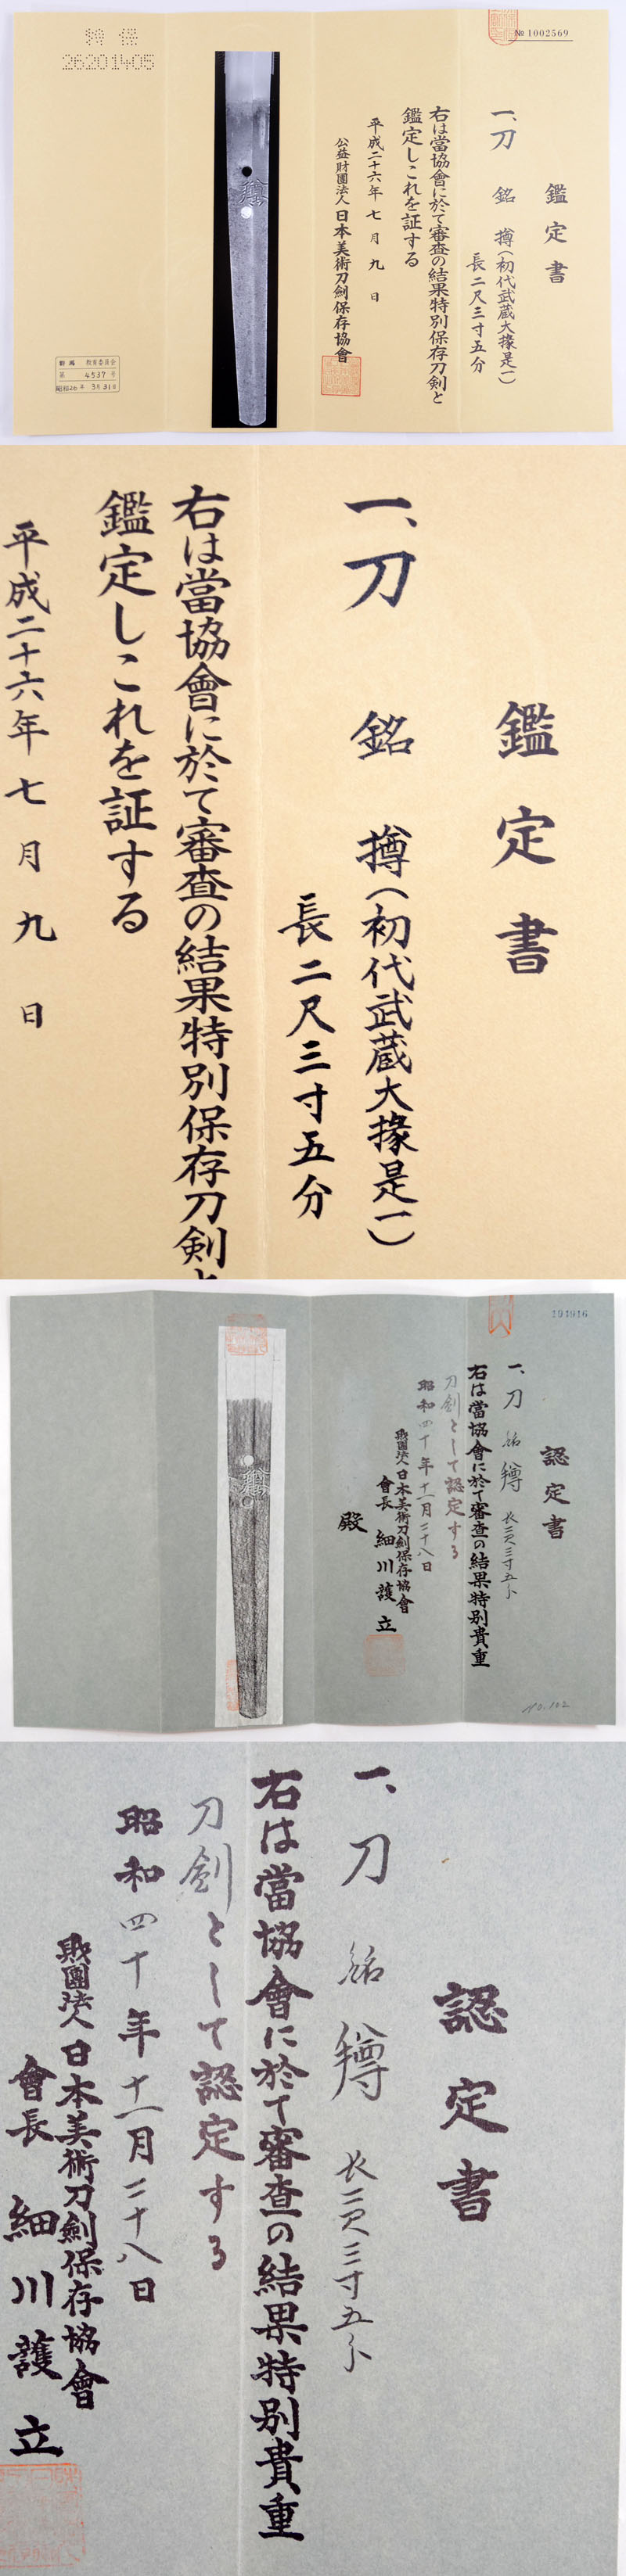 № 1002569
鑑定書
一、刀 銘 㙛(初代武蔵大掾是一)
長二尺三寸五分
右は當協會に於て審査の結果特別保存刀剣と
鑑定しこれを証する
平成二十六年七月九日
公益財團法人 日本美術刀劍保存協會
特保
26201405
群馬 教育委員会
第 4537 号
昭和26年 3月31日
鑑定書
一、刀 銘 㙛(初代武蔵大掾是一)
長二尺三寸五分
右は當協會に於て審査の結果特別保存刀剣と
鑑定しこれを証する
平成二十六年七月九日
191916
認定書
一、刀 銘 長二尺三寸五分
右は當協會に於て審査の結果特別貴重
刀剣として認定する
昭和四十年十一月二十八日
財團法人 日本美術刀劍保存協會
會長 細川護立
殿
No.102
認定書
一、刀 銘 長二尺三寸五分
右は當協會に於て審査の結果特別貴重
刀剣として認定する
昭和四十年十一月二十八日
財團法人 日本美術刀劍保存協會
會長 細川護立